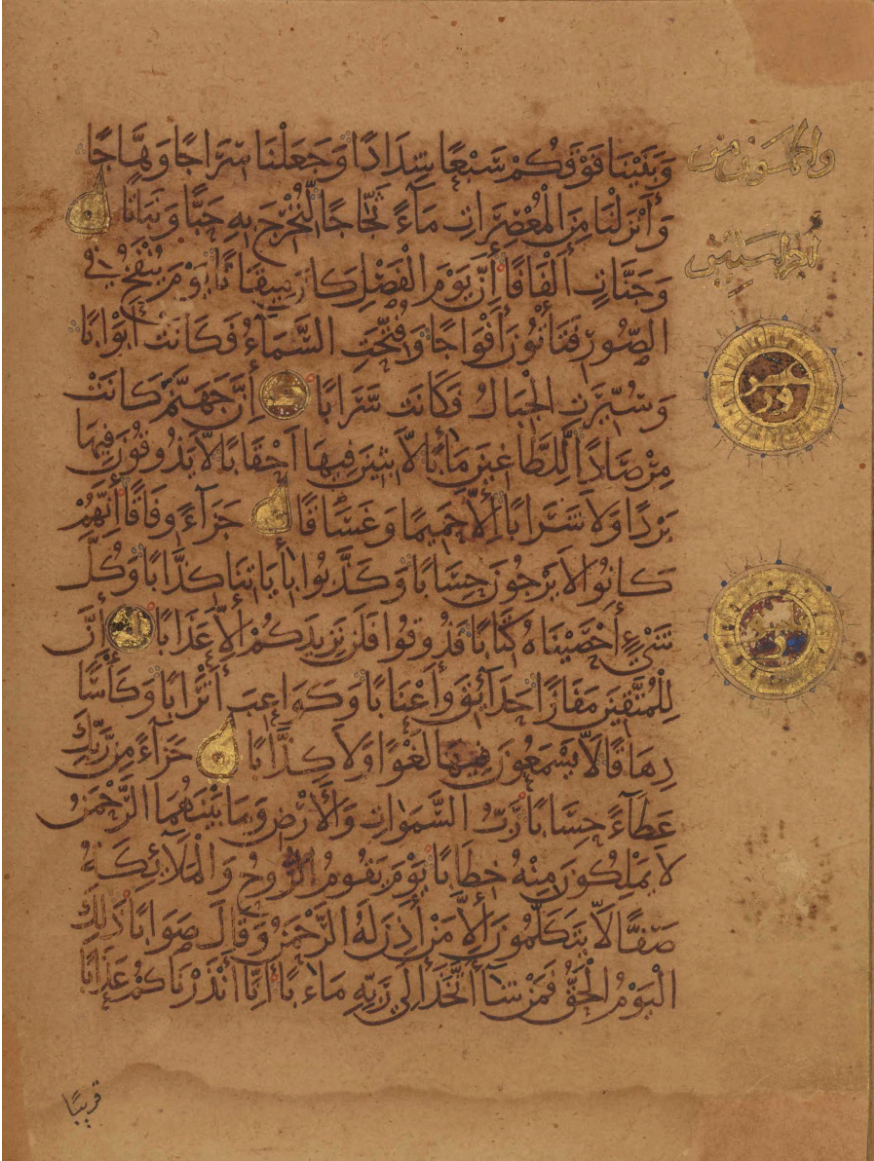 وَبَنَيْنَا فَوْقَكُمْ سَبْعًا شِدَادًا وَجَعَلْنَا سِرَاجًا وَهَّاجًا
وَأَنْزَلْنَا مِنَ الْمُعْصِرَاتِ مَآءً ثَجَّاجًا لِّنُخْرِجَ بِهِ حَبًّا وَنَبَاتًا
وَجَنَّاتٍ أَلْفَافًا إِنَّ يَوْمَ الْفَصْلِ كَانَ مِيقَاتًا يَوْمَ يُنْفَخُ فِي
الصُّورِ فَتَأْتُونَ أَفْوَاجًا وَفُتِّحَتِ السَّمَآءُ فَكَانَتْ أَبْوَابًا
وَسُيِّرَتِ الْجِبَالُ فَكَانَتْ سَرَابًا إِنَّ جَهَنَّمَ كَانَتْ
مِرْصَادًا لِلطَّاغِينَ مَآبًا لَابِثِينَ فِيهَا أَحْقَابًا لَا يَذُوقُونَ فِيهَا
بَرْدًا وَلَا شَرَابًا إِلَّا حَمِيمًا وَغَسَّاقًا جَزَآءً وِفَاقًا إِنَّهُمْ
كَانُوا لَا يَرْجُونَ حِسَابًا وَكَذَّبُوا بِآيَاتِنَا كِذَّابًا وَكُلَّ
شَيْءٍ أَحْصَيْنَاهُ كِتَابًا فَذُوقُوا فَلَنْ نَزِيدَكُمْ إِلَّا عَذَابًا إِنَّ
لِلْمُتَّقِينَ مَفَازًا حَدَآئِقَ وَأَعْنَابًا وَكَوَاعِبَ أَتْرَابًا وَكَأْسًا
دِهَاقًا لَا يَسْمَعُونَ فِيهَا لَغْوًا وَلَا كِذَّابًا جَزَآءً مِنْ رَبِّكَ
عَطَآءً حِسَابًا رَبِّ السَّمَوَاتِ وَالْأَرْضِ وَمَا بَيْنَهُمَا الرَّحْمَنُ
لَا يَمْلِكُونَ مِنْهُ خِطَابًا يَوْمَ يَقُومُ الرُّوحُ وَالْمَلَآئِكَةُ
صَفًّا لَا يَتَكَلَّمُونَ إِلَّا مَنْ أَذِنَ لَهُ الرَّحْمَنُ وَقَالَ صَوَابًا ذَلِكَ
الْيَوْمُ الْحَقُّ فَمَنْ شَآءَ اتَّخَذَ إِلَى رَبِّهِ مَآبًا إِنَّا أَنْذَرْنَاكُمْ عَذَابًا
قَرِيبًا